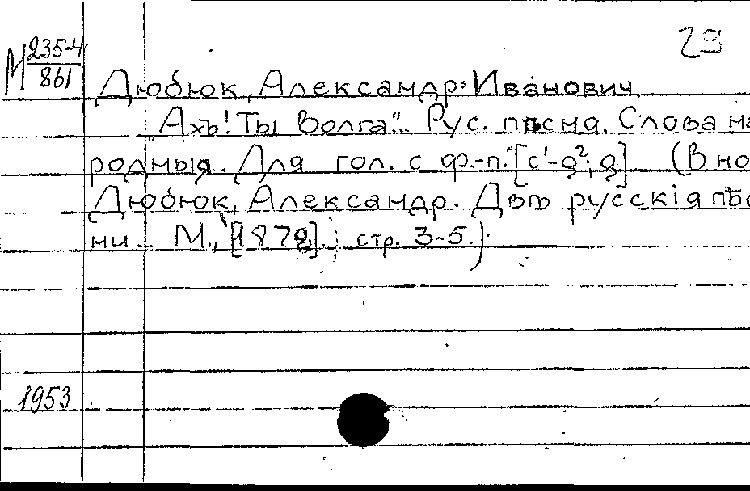 М 235-4/861
29
Дюбюк, Александр Иванович
"Ахъ! Ты Волга". Рус. пѣсня. Слова на-
родныя. Для гол. с ф.-п. [c¹-g², g] (В но
Дюбюк, Александр. Двѣ русскія пѣс
ни... М., [1872]. стр. 3-5.)
1953